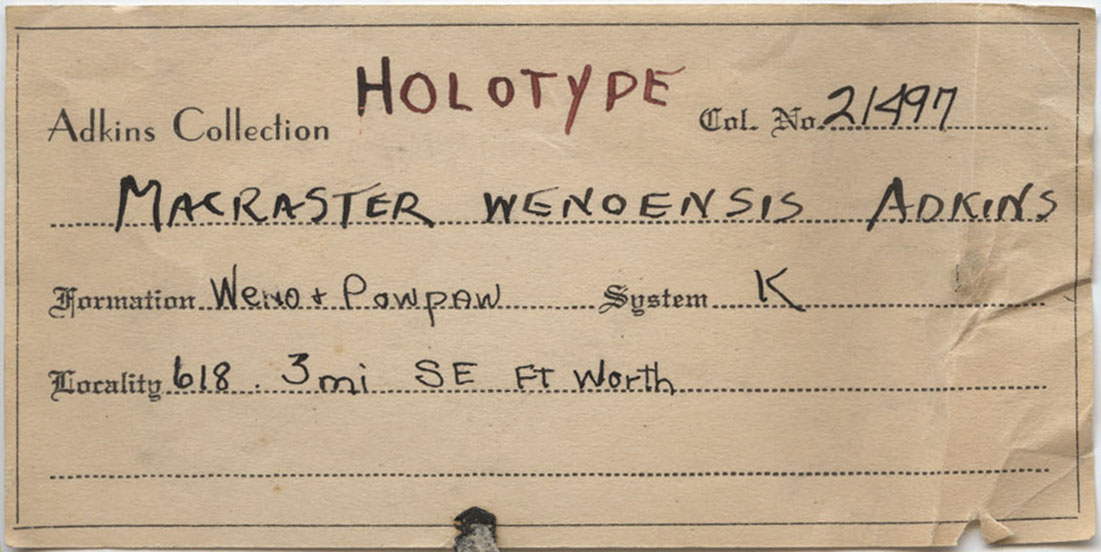 HOLOTYPE
Adkins Collection Col. No. 21497
MACRASTER WENOENSIS ADKINS
Formation Weno + Pawpaw System K
Locality 618. 3mi SE FT Worth